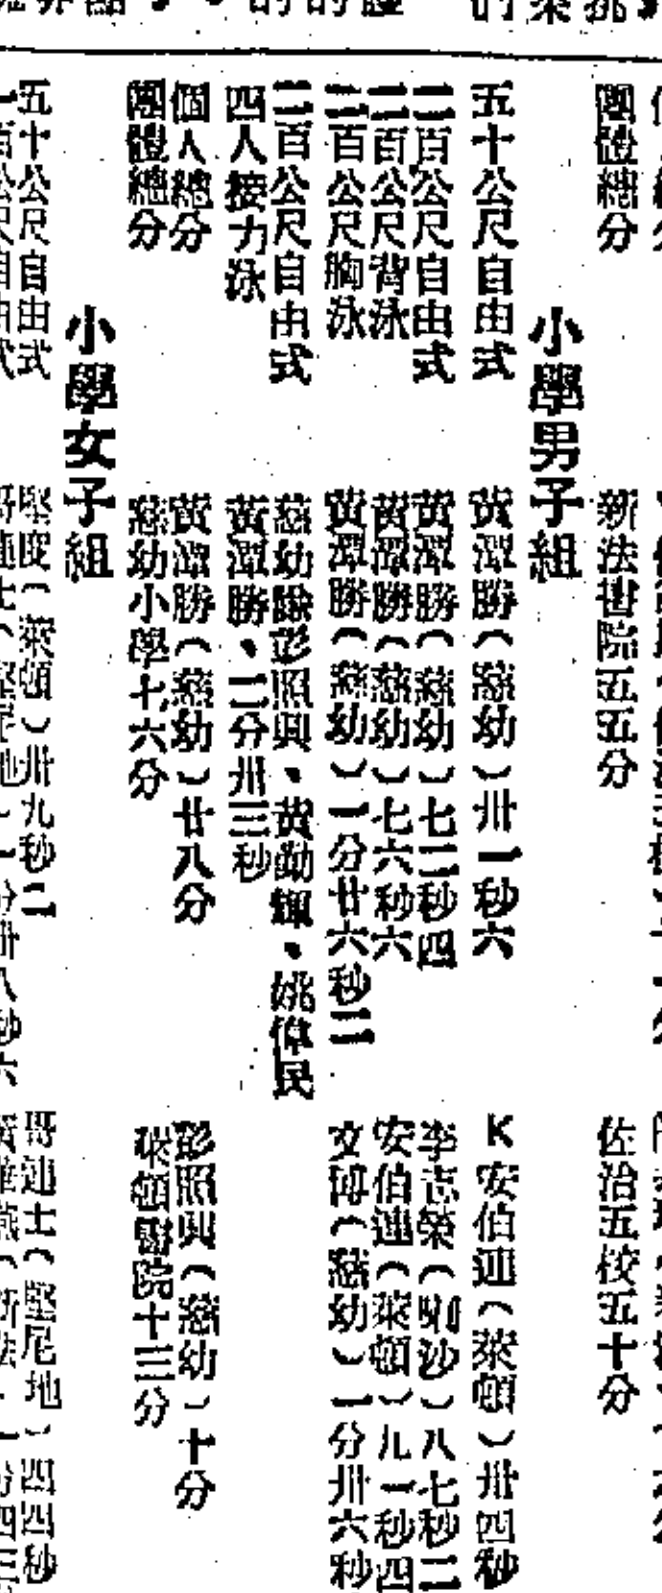 團體總分　新法書院五五分　佐治五校五十分
小學男子組
五十公尺自由式　黃潭勝（慈幼）卅一秒六　K安伯連（萊頓）卅四秒
一百公尺自由式　黃潭勝（慈幼）七二秒四　李志榮（喇沙）八七秒二
一百公尺背泳　黃潭勝（慈幼）七六秒六　安伯連（萊頓）九一秒四
一百公尺胸泳　黃潭勝（慈幼）一分廿六秒二　文博（慈幼）一分卅六秒
二百公尺自由式　慈幼隊彭照興、黃勤輝、姚偉民
四人接力泳　黃潭勝、二分卅三秒
個人總分　黃潭勝（慈幼）廿八分　彭照興（慈幼）十分
團體總分　慈幼小學七六分　萊頓書院十三分
小學女子組
五十公尺自由式　堅度（萊頓）卅九秒二　哥連士（堅尼地）四四秒